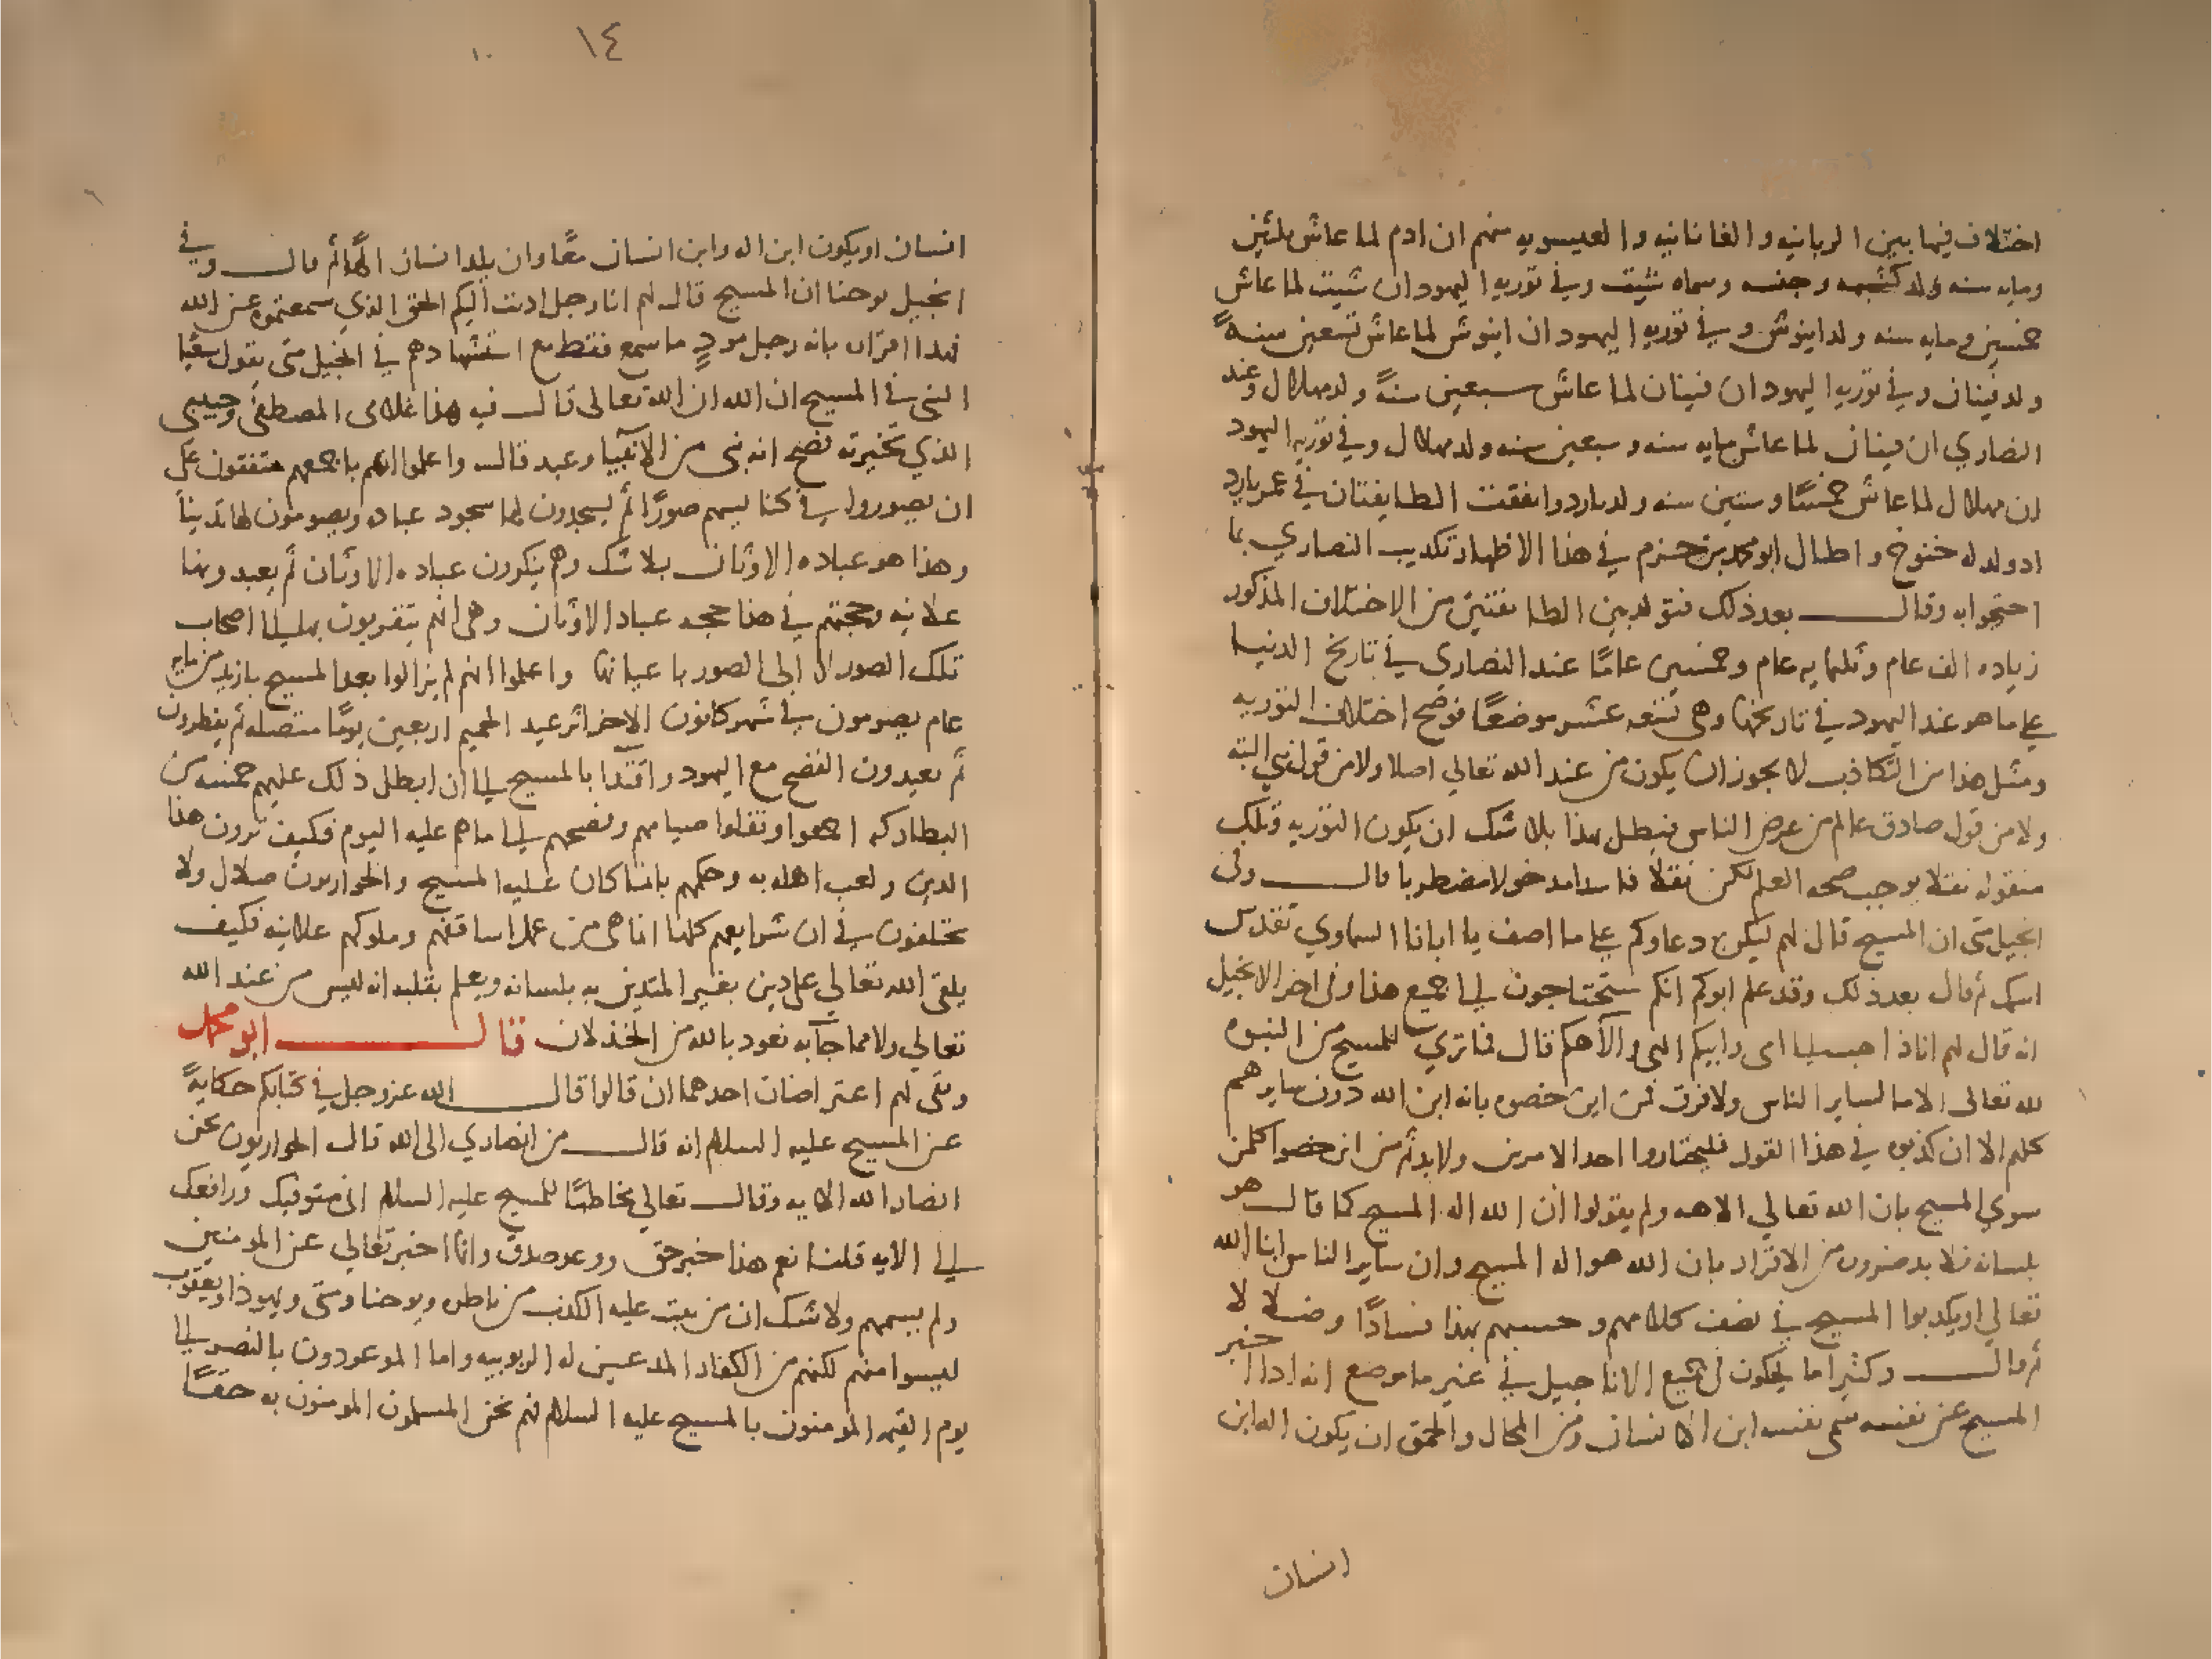 اختلاف فيما بين الربانيه والعانانيه والعيسويه منهم ان ادم لما عاش ثلثين
ومايه سنه ولد كشبهه وجنسه وسماه شيث وفي توريه اليهود ان شيث لما عاش
خمسين ومايه سنه ولد اينوش وفي توريه اليهود ان اينوش لما عاش تسعين سنةً
ولد قينان وفي توريه اليهود ان قينان لما عاش سبعين سنةً ولد مهلال وعند
النصاري ان قينان لما عاش مايه سنه وسبعين سنه ولد مهلال وفي توريه اليهود
ان مهلال لما عاش خمسًا وستين سنه ولد يارد واتفقت الطايفتان في عمر يارد
اد ولد له خنوخ واطال ابو محمد بن حزم في هذا الاظهار تكديب النصاري بما
احتجوا به وقال بعد ذلك فتولد بين الطايفتين من الاختلاف المذكور
زياده الف عام وثلثمايه عام وخمسين عامًا عند النصاري في تاريخ الدنيا
علي ما هو عند اليهود في تاريخها وهي تسعه عشر موضعًا فوضح اختلاف التوريه
ومثل هذا من التكاذب لا يجوز ان يكون من عند الله تعالي اصلا ولا من قول نبي البته
ولا من قول صادق عالم من عرض الناس فبطل بهذا بلا شك ان يكون التوريه وتلك
منقوله نقلا يوجب صحه العلم لكن نقلا فاسدا مدخولا مضطربا قال وفي
انجيل متى ان المسيح قال لهم ليكن دعاوكم علي ما اصف يا ابانا السماوي تقدس
اسمك ثم قال بعد ذلك وقد علم ابوكم انكم ستحتاجون الي جميع هذا وفي اخر الانجيل
انه قال لهم انا ذاهب الي ابي وابيكم الهي والاهكم قال فما تري للمسيح من النبوه
لله تعالى الا ما لساير الناس ولا فرق فمن اين خصوه بانه ابن الله دون سايرهم
كلهم الا ان كذبوه في هذا القول فليختاروا احد الامرين ولا بد ثم من اين خصوا كلمن
سوي المسيح بان الله تعالي الاهه ولم يقولوا ان الله اله المسيح كما قال هو
بلسانه فلا بد ضروره من الاقرار بان الله هو اله المسيح وان ساير الناس ابنا الله
تعالي او يكدبوا المسيح في نصف كلامهم وحسبهم بهذا فسادًا وضلالا
ثم قال وكثيرا ما يحكون في جميع الاناجيل في غير ما موضع انه اداا خبر
المسيح عن نفسه سمى نفسه ابن الانسان ومن المحال والحمق ان يكون اله ابن
انسان
١٤
١٠
انسان او يكون ابن اله وابن انسان معًا وان يلد انسان الهًا ثم قال وفي
انجيل يوحنا ان المسيح قال لهم انا رجل اديت اليكم الحق الذي سمعتموه عن الله
فهدا اقرار بانه رجل مودٍ ما سمع فقط مع استشهادهم في انجيل متى بقول شعيا
النبي في المسيح ان الله ان الله تعالى قال فيه هذا غلامي المصطفى وحبيبي
الذي تخيرته فصح انه نبي من الانبيا وعبد قال واعلموا انهم باجمعهم متفقون على
ان يصوروا في كنايسهم صورًا ثم يسجدون لها سجود عباده ويصومون لها تدينا
وهذا هو عباده الاوثان بلا شك وهم ينكرون عباده الاوثان ثم يعبدونها
علانيه وحجتهم في هذا حجه عباد الاوثان وهي انهم يتقربون بها الي اصحاب
تلك الصور لا الى الصور باعيانها واعلموا انهم لم يزالوا بعد المسيح بازيد من مايه
عام يصومون في شهر كانون الاخر اثر عيد الحميم اربعين يومًا متصله ثم يفطرون
ثم يعيدون الفصح مع اليهود اقتدا بالمسيح الي ان ابطل ذلك عليهم خمسه من
البطاركه اجمعوا ونقلوا صيامهم وفصحهم الي ما هم عليه اليوم فكيف ترون هذا
الدين ولعب اهله به وحكمهم بان ما كان عليه المسيح والحواريون ضلال ولا
يختلفون في ان شرايعهم كلها انما هي من عمل اساقفتهم وملوكهم علانيه فكيف
يلقى الله تعالي على دين بغير المتدين به بلسانه ويعلم بقلبه انه ليس من عند الله
تعالي ولا مما جا به نعود بالله من الخذلان قال ابو محمد
وبقى لهم اعتراضان احدهما ان قالوا قال الله عز وجل في كتابكم حكايةً
عن المسيح عليه السلام انه قال من انصاري الى الله قال الحواريون نحن
انصار الله الايه وقال تعالي مخاطبًا للمسيح عليه السلام اني متوفيك ورافعك
الي الايه قلنا نعم هذا خبر حق ووعد صدق وانما اخبر تعالي عن المومنين
ولم يسمهم ولا شك ان من ثبت عليه الكذب من باطره ويوحنا ومتى ويهوذا ويعقوب
ليسوا منهم لكنهم من الكفار المدعين له الربوبيه واما الموعودون بالنصر الي
يوم القيمه المومنون بالمسيح عليه السلام فهم نحن المسلمون المومنون به حقًا